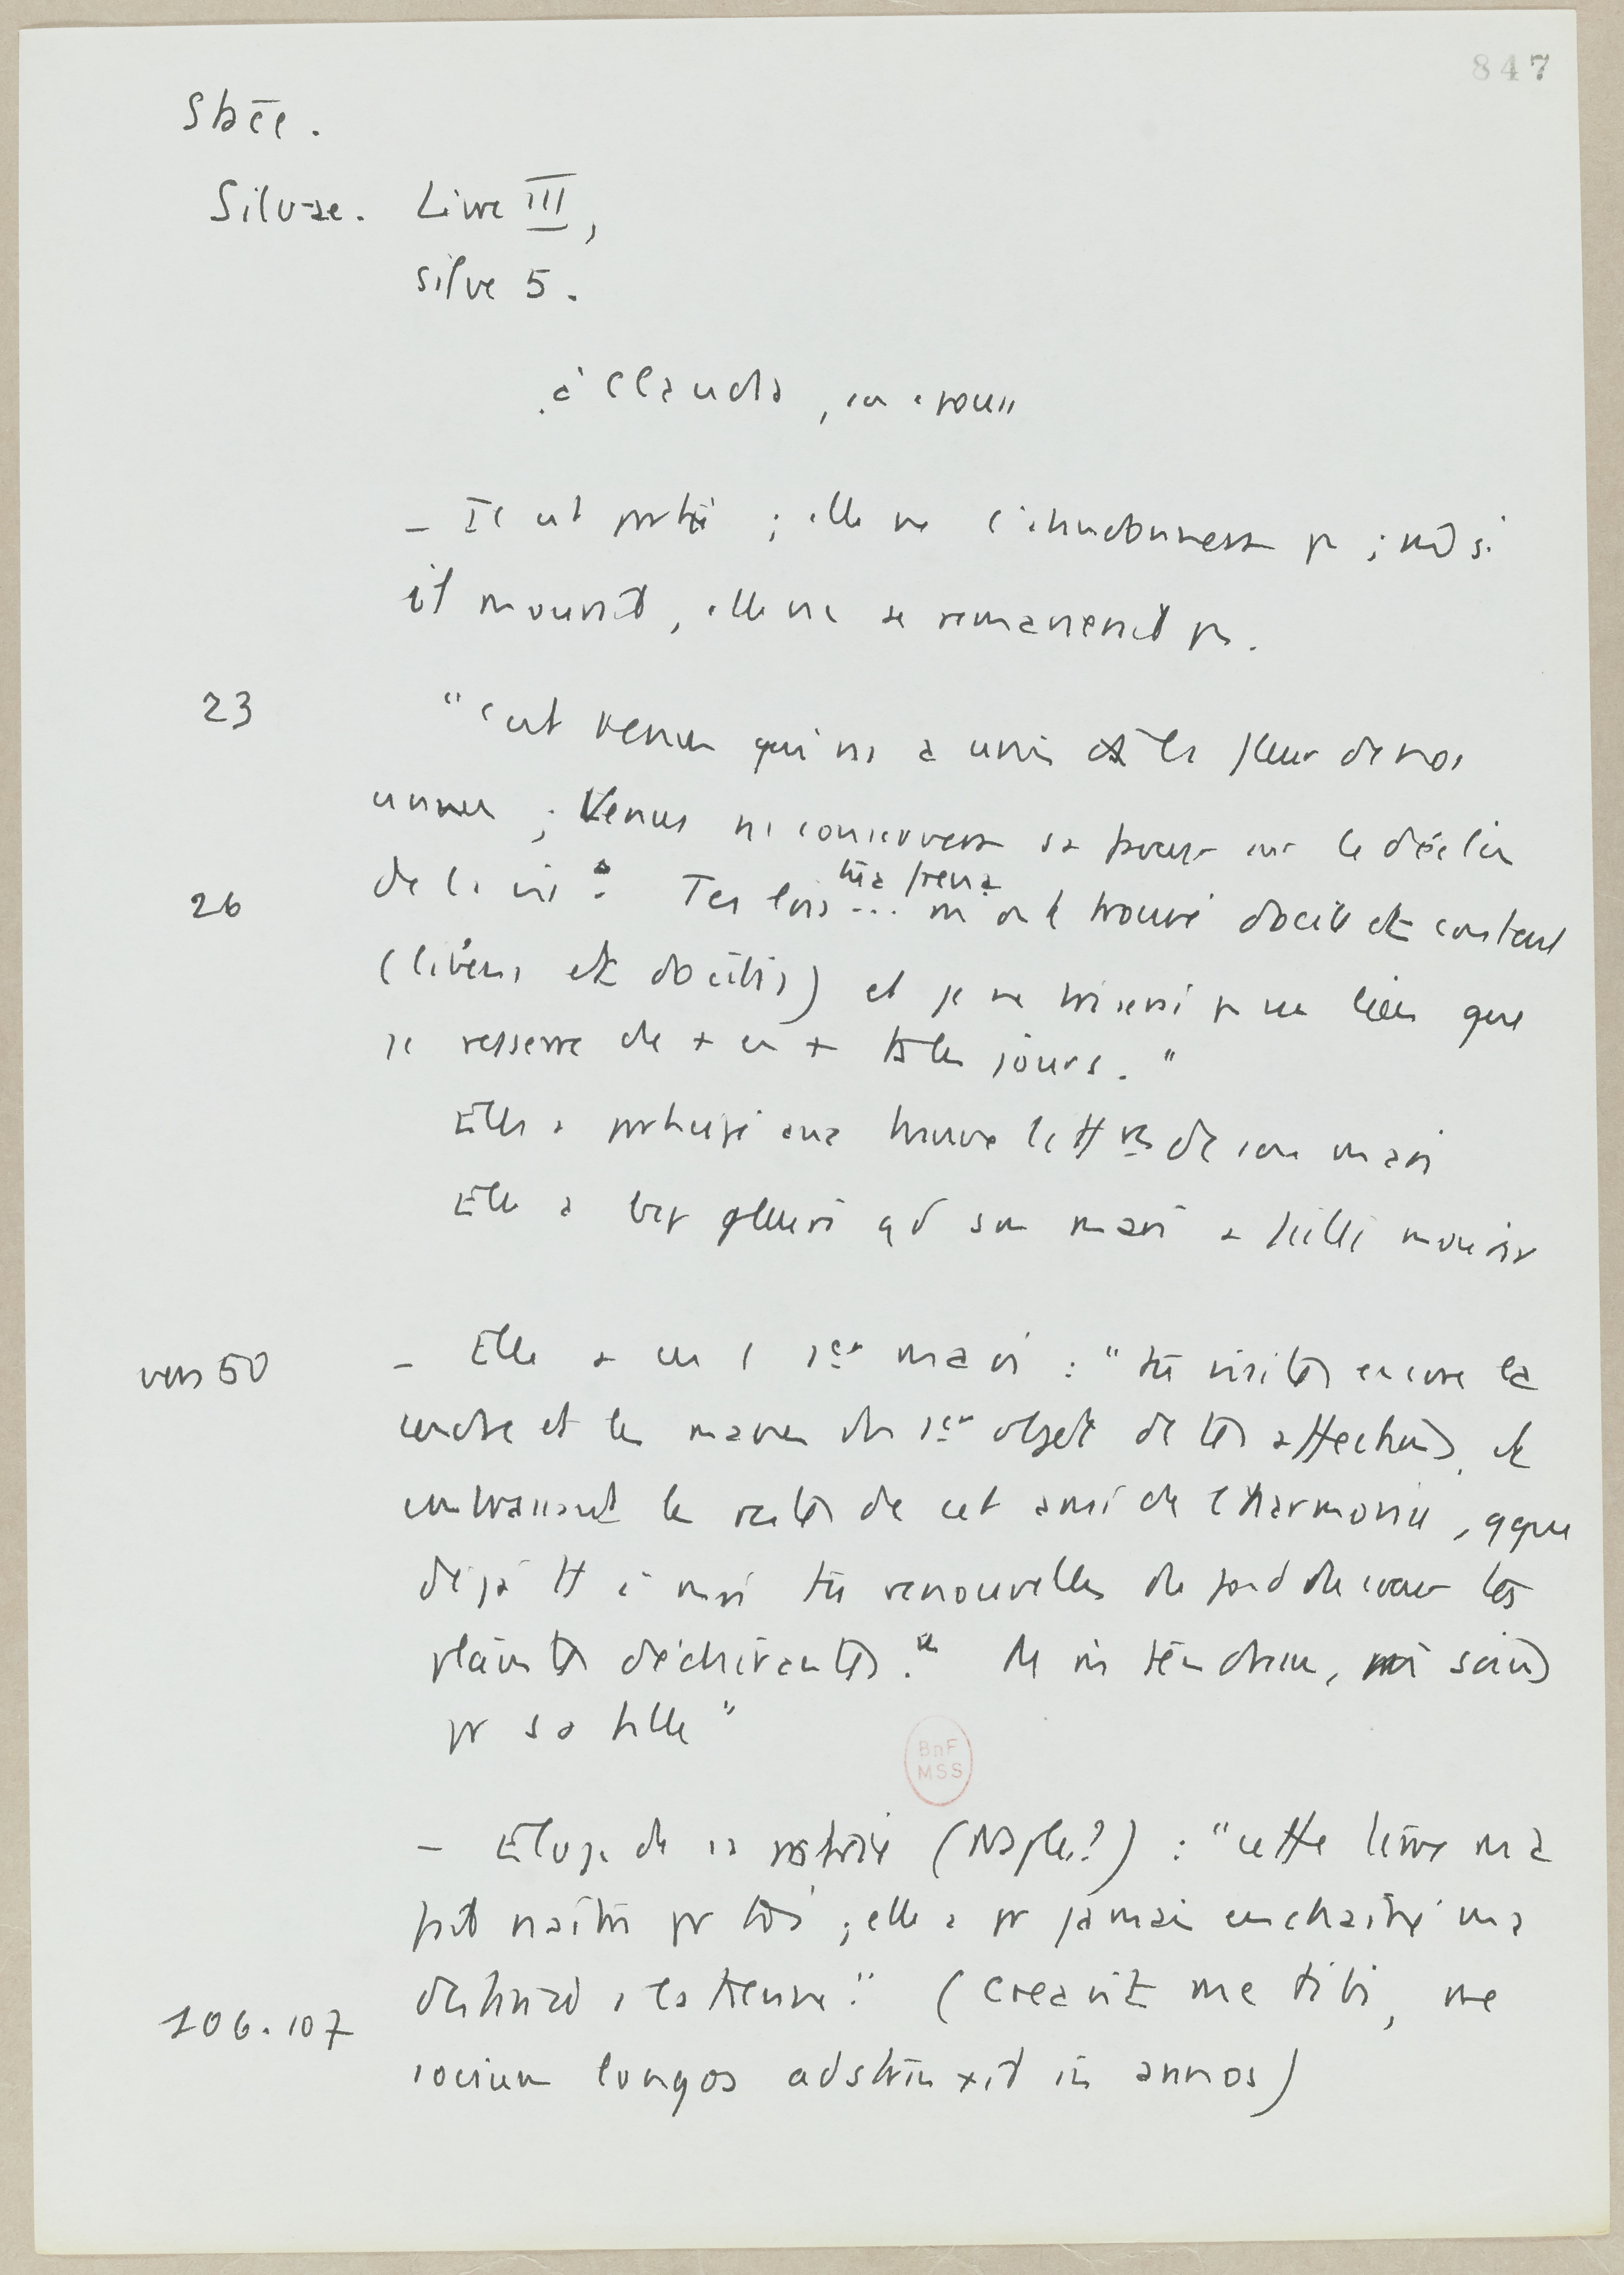 847
Stace.
Silvae. Livre III,
silve 5.
à Claudia, son épouse
- Il est parti ; elle ne l'abandonnera ps ; mê si
il mourait, elle ne se remarierait ps.
23 "C'est Venus qui ns a unis ds la fleur de nos
années ; Venus ns conservera sa faveur sur le déclin
26 de la vie. Tes lois... tua frena m'ont trouvé docile et content
(libens et docilis) et je ne briserai ps un lien que
je resserre de + en + ts les jours."
Elle a participé aux travx littres de son mari
Elle a bcp pleuré qd son mari a failli mourir
vers 50 - Elle a eu 1 1er mari : "tu visites encore la
cendre et les manes du 1er objet de tes affections, et
embrassant les restes de cet ami de l'harmonie, qque
déjà tt à moi tu renouvelles du fond du coeur tes
plaintes déchirantes." Mê tendresse, mê soins
pr sa fille"
BnF
MSS
- Eloge de sa patrie (Naples?) : "cette terre m'a
fait naître pr toi ; elle a pr jamais enchaîné ma
destinée à la tienne." (creavit me tibi, me
106.107 socium longos adstrinxit in annos)